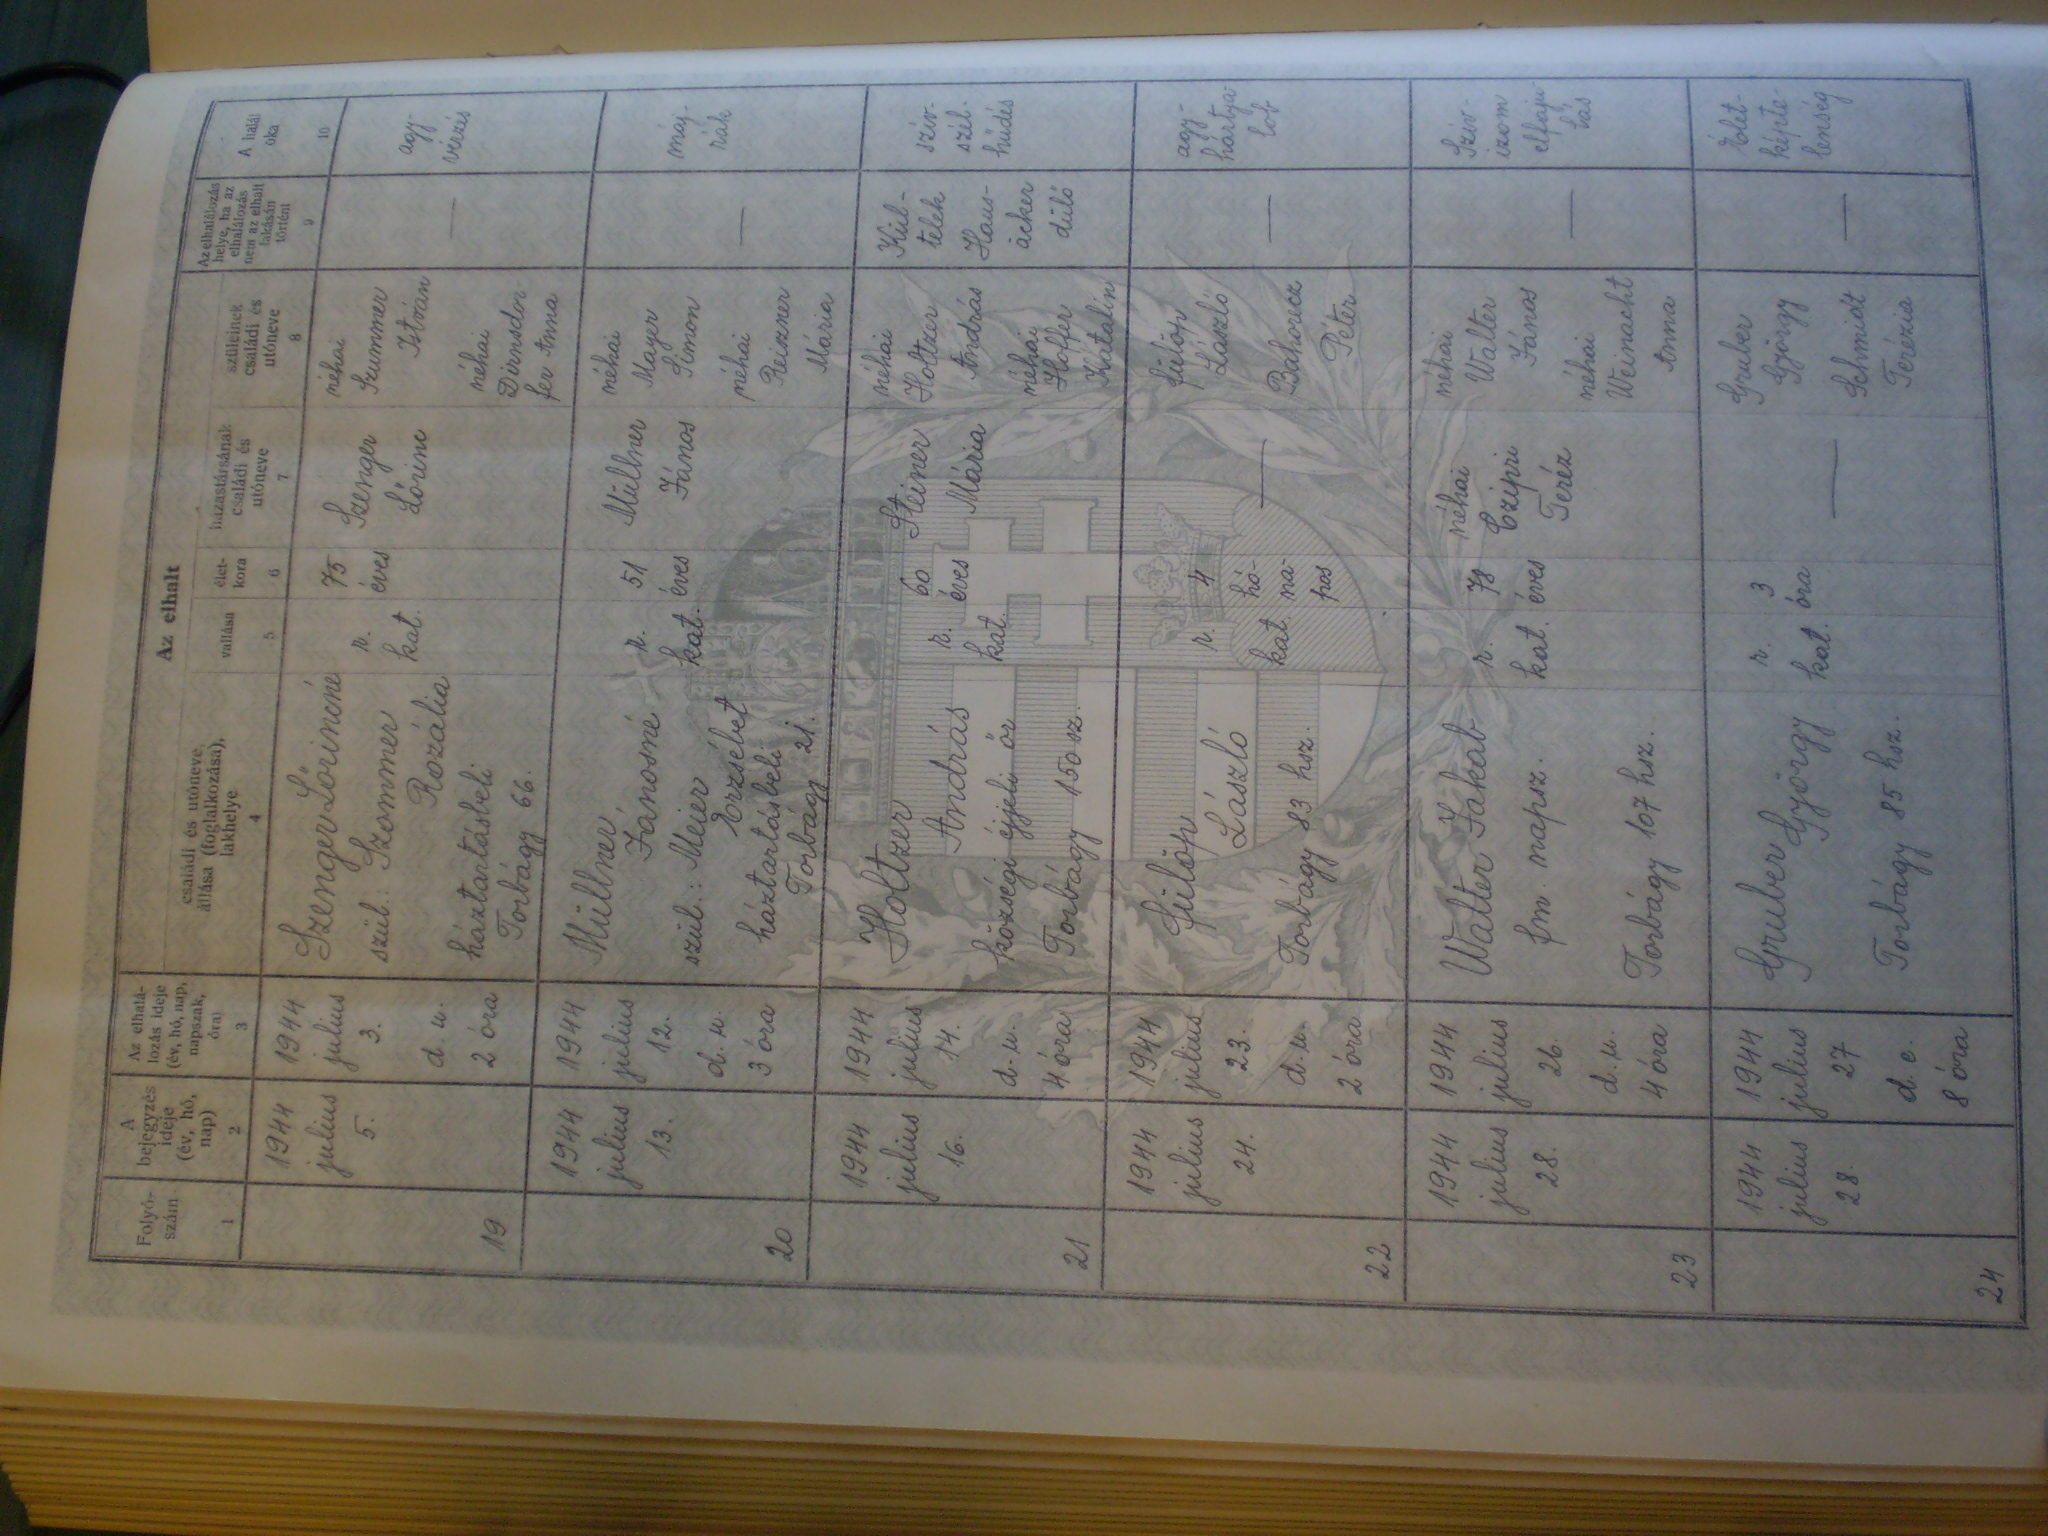 Az elhalt
Folyó-
szám
1
A
bejegyzés
ideje
(év, hó,
nap)
2
Az elhalá-
lozás ideje
(év, hó, nap,
napszak,
óra)
3
családi és utóneve,
állása (foglalkozása),
lakhelye
4
vallása
5
élet-
kora
6
házastársának
családi és
utóneve
7
szüleinek
családi és
utóneve
8
Az elhalálozás
helye, ha az
elhalálozás
nem az elhalt
lakásán
történt
9
A halál
oka
10
19
1944
július
5.
1944
július
3.
d. u.
2 óra
Szenger Lőrincné
szül.: Szommer
Rozália
háztartásbeli
Torbágy 66.
r.
kat.
75
éves
Szenger
Lőrinc
néhai
Szummer
István
néhai
Dirnsdor-
fer Anna
—
agy-
vérzés
20
1944
július
13.
1944
július
12.
d. u.
3 óra
Müllner
Jánosné
szül.: Meier
Erzsébet
háztartásbeli
Torbágy 21.
r.
kat.
51
éves
Müllner
János
néhai
Mayer
Simon
néhai
Reizner
Mária
—
máj-
rák
21
1944
július
16.
1944
július
14.
d. u.
4 óra
Holtzer
András
községi éjjeli őr
Torbágy 150 sz.
r.
kat.
60
éves
Steiner
Mária
néhai
Holtzer
András
néhai
Hoffer
Katalin
Kül-
telek
Haus-
äcker
dülő
szív-
szél-
hüdés
22
1944
július
24.
1944
július
23.
d. u.
2 óra
Fülöp
László
Torbágy 83 hsz.
r.
kat.
4
hó-
na-
pos
—
Fülöp
László
Bahorecz
Péter
—
agy-
hártya-
lob
23
1944
július
28.
1944
július
26.
d. u.
4 óra
Walter Jakab
fm. napsz.
Torbágy 107 hsz.
r.
kat.
78
éves
néhai
Czipri
Teréz
néhai
Walter
János
néhai
Weinacht
Anna
—
Szív-
izom
elfaju-
lás
24
1944
július
28.
1944
július
27
d. e.
8 óra
Gruber
György
Torbágy 85 hsz.
r.
kat.
3
óra
—
Gruber
György
Schmidt
Terézia
—
Élet-
képte-
lenség